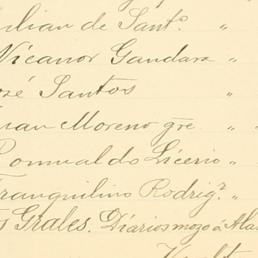 ilian de Santo. "
Nicanor Gandara "
osé Santos "
uan Moreno gre "
Romualdo Licerio "
ranquilino Rodrigz. "
s Grales. Diarios mozo á